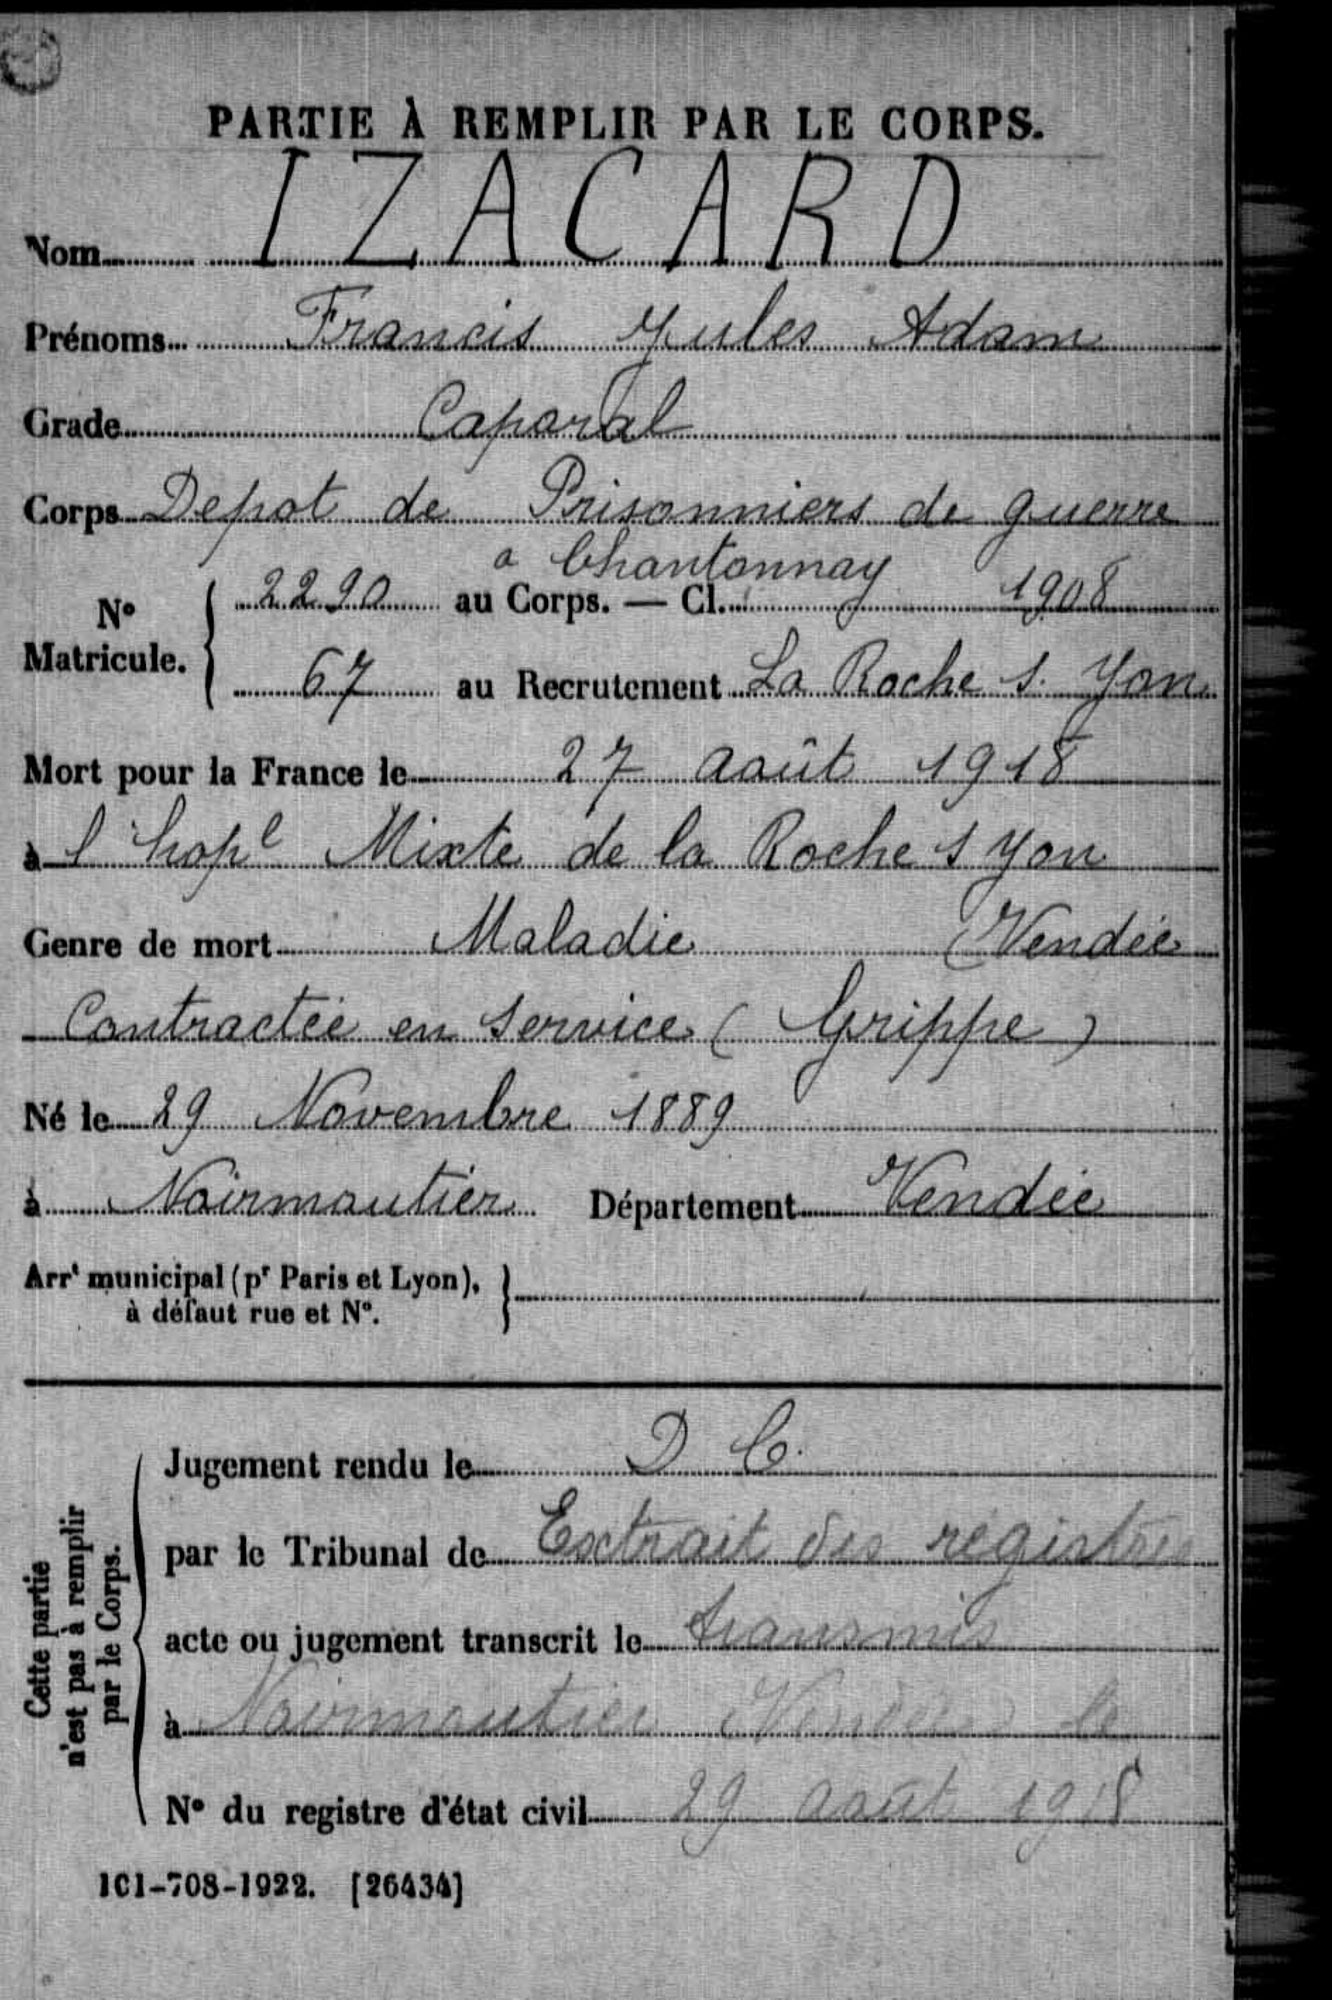 PARTIE À REMPLIR PAR LE CORPS.
Nom IZACARD
Prénoms Francis Jules Adam
Grade Caporal
Corps Depot de Prisonniers de guerre
a Chantonnay
N° Matricule. 2290 au Corps. — Cl. 1908
67 au Recrutement La Roche s. Yon
Mort pour la France le 27 août 1918
à l'hopl Mixte de la Roche s Yon
Genre de mort Maladie (Vendée
Contractée en service (Grippe)
Né le 29 Novembre 1889
à Noirmoutier Département Vendée
Arrt municipal (pr Paris et Lyon),
à défaut rue et N°.
Cette partie
n'est pas à remplir
par le Corps.
Jugement rendu le D C.
par le Tribunal de Extrait des registres
acte ou jugement transcrit le transmis
à Noirmoutier (Vendée) le
N° du registre d'état civil 29 août 1918
101-708-1922. [26434]